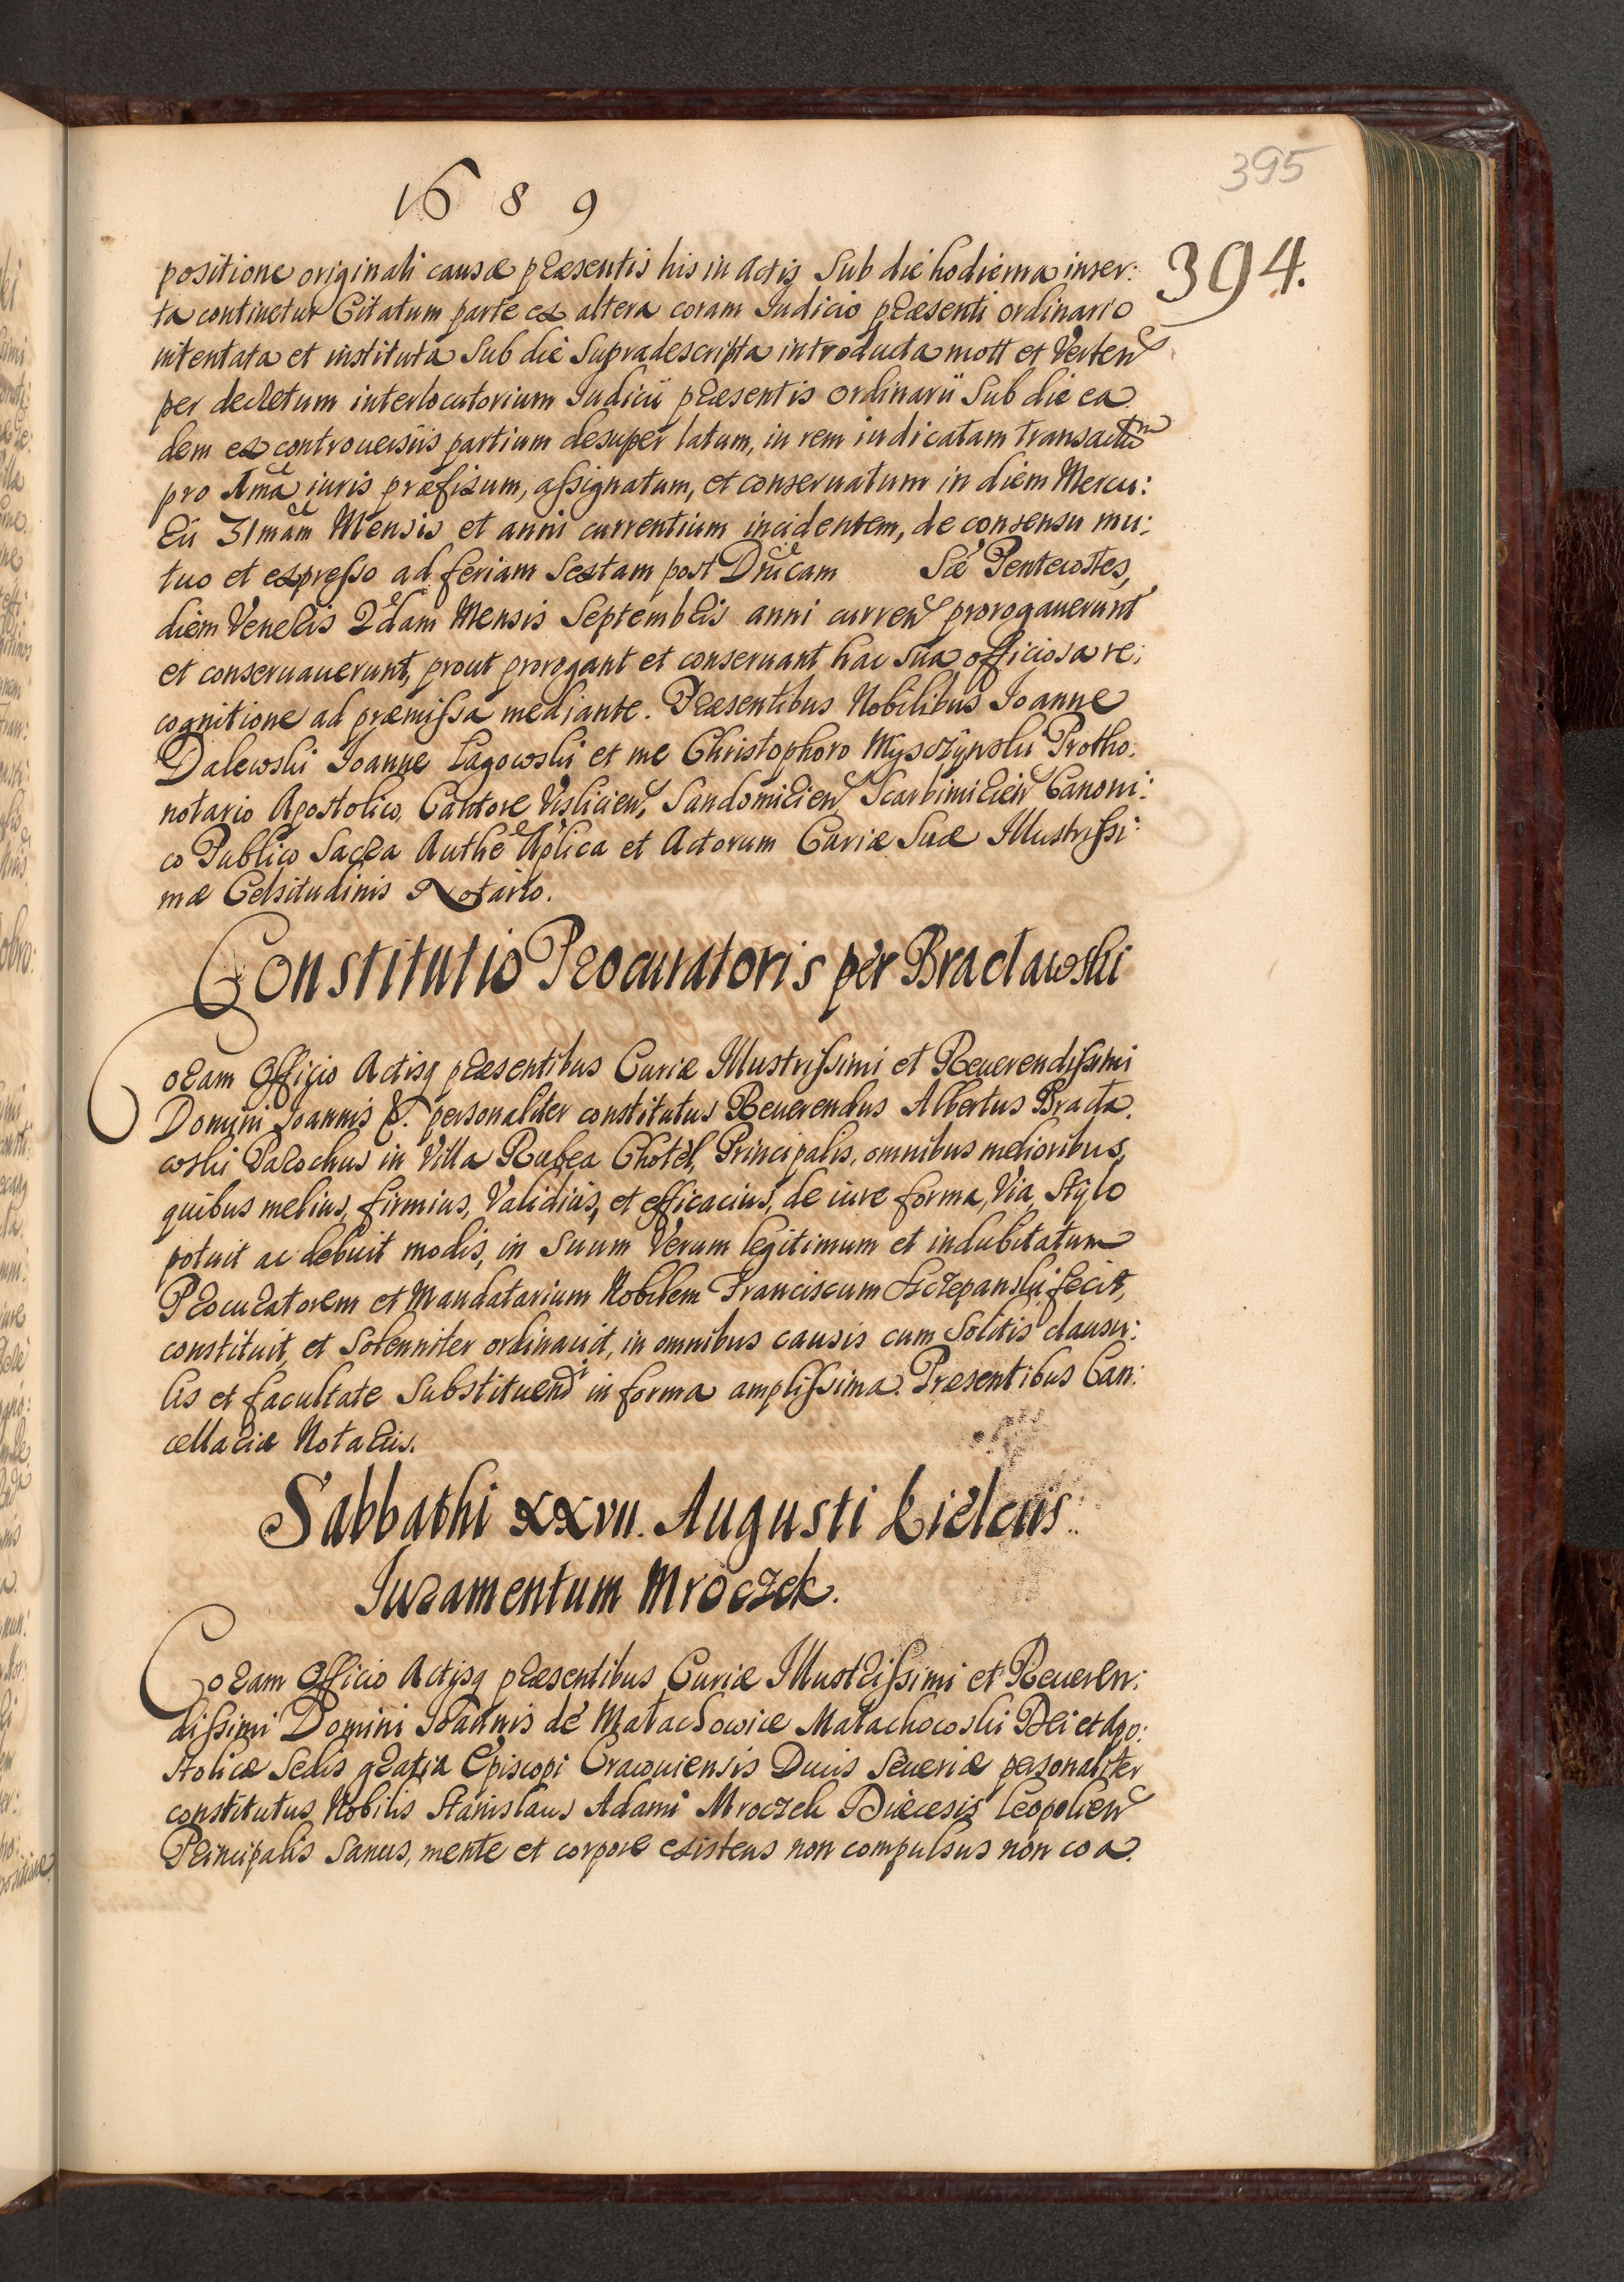 395
1689
394.
positione originali causæ præsentis his in Actis sub die hodierna inser:
ta continetur Citatum parte ex altera coram Iudicio præsenti ordinario
intentata et instituta sub die supradescripta introducta mott et Verten
per decretum interlocutorium Iudicii præsentis ordinarii sub die ea
dem ex controuersiis partium desuper latum, in rem iudicatam transactum
pro Ama iuris præfixum, assignatum, et conseruatum in diem Mercu:
rii 31mam Mensis et anni currentium incidentem, de consensu mu:
tuo et expresso ad feriam sextam post Dnicam Sæ Pentecostes,
diem Veneris 2dam Mensis Septembris anni curren prorogauerunt
et conseruauerunt, prout prorogant et conseruant hac sua officiosa re:
cognitione ad præmissa mediante. Præsentibus Nobilibus Ioanne
Dalewski Ioanne Łagowski et me Christophoro Myszczynski Protho:
notario Apostolico, Cantore Vislicien, Sandomirien Scarbimirien Canoni:
co Publico Sacra Authe Aplica et Actorum Curiæ Suæ Illustrissi:
mæ Celsitudinis Notario.
Constitutio Procuratoris per Bractawski
Coram Officio Actisq præsentibus Curiæ Illustrissimi et Reuerendissimi
Domini Ioannis &. personaliter constitutus Reuerendus Albertus Bracta.
wski Parochus in Villa Rubea Chotel, Principalis, omnibus melioribus,
quibus melius, firmius, Validius, et efficacius, de iure forma, Via, Stylo
potuit ac debuit modis, in suum Verum legitimum et indubitatum
Procuratorem et Mandatarium Nobilem Franciscum Sczepanski fecit,
constituit, et Solenniter ordinauit, in omnibus causis cum Solitis clausu:
lis et facultate Substituendi in forma amplissima. Præsentibus Can:
cellariæ Notariis.
Sabbathi XXVII. Augusti Kielciis.
Iuramentum Mroczek.
Coram Officio Actisq præsentibus Curiæ Illustrissimi et Reueren:
dissimi Domini Ioannis de Małachowice Małachowski Dei et Apo:
stolicæ Sedis gratia Episcopi Cracouiensis Ducis Seueriæ personaliter
constitutus Nobilis Stanislaus Adami Mroczek Diæcesis Leopolien
Principalis sanus, mente et corpore existens non compulsus non coa.